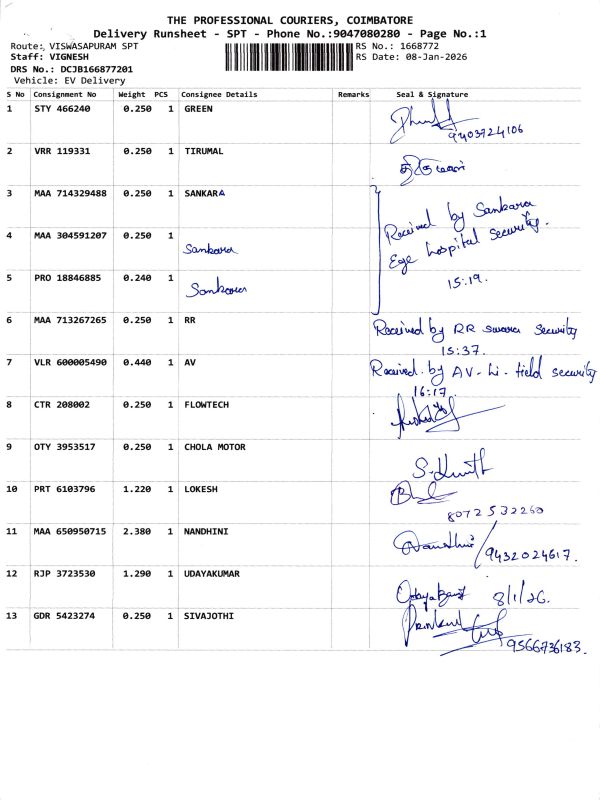 THE PROFESSIONAL COURIERS, COIMBATORE
Delivery Runsheet - SPT - Phone No.:9047080280 - Page No.:1
Route: VISWASAPURAM SPT
RS No.: 1668772
Staff: VIGNESH
RS Date: 08-Jan-2026
DRS No.: DCJB166877201
Vehicle: EV Delivery
S No Consignment No Weight PCS Consignee Details Remarks Seal & Signature
1 STY 466240 0.250 1 GREEN
9403724106
2 VRR 119331 0.250 1 TIRUMAL
3 MAA 714329488 0.250 1 SANKARA
Received by Sankara
Eye hospital security.
15:19.
4 MAA 304591207 0.250 1
Sankara
5 PRO 18846885 0.240 1
Sankara
6 MAA 713267265 0.250 1 RR
Received by RR security
15:37.
7 VLR 600005490 0.440 1 AV
Received by AV-Hi-field security
16:17
8 CTR 208002 0.250 1 FLOWTECH
9 OTY 3953517 0.250 1 CHOLA MOTOR
10 PRT 6103796 1.220 1 LOKESH
8072532260
11 MAA 650950715 2.380 1 NANDHINI
Nandhini/9432024617.
12 RJP 3723530 1.290 1 UDAYAKUMAR
8/1/26.
13 GDR 5423274 0.250 1 SIVAJOTHI
9566736183.